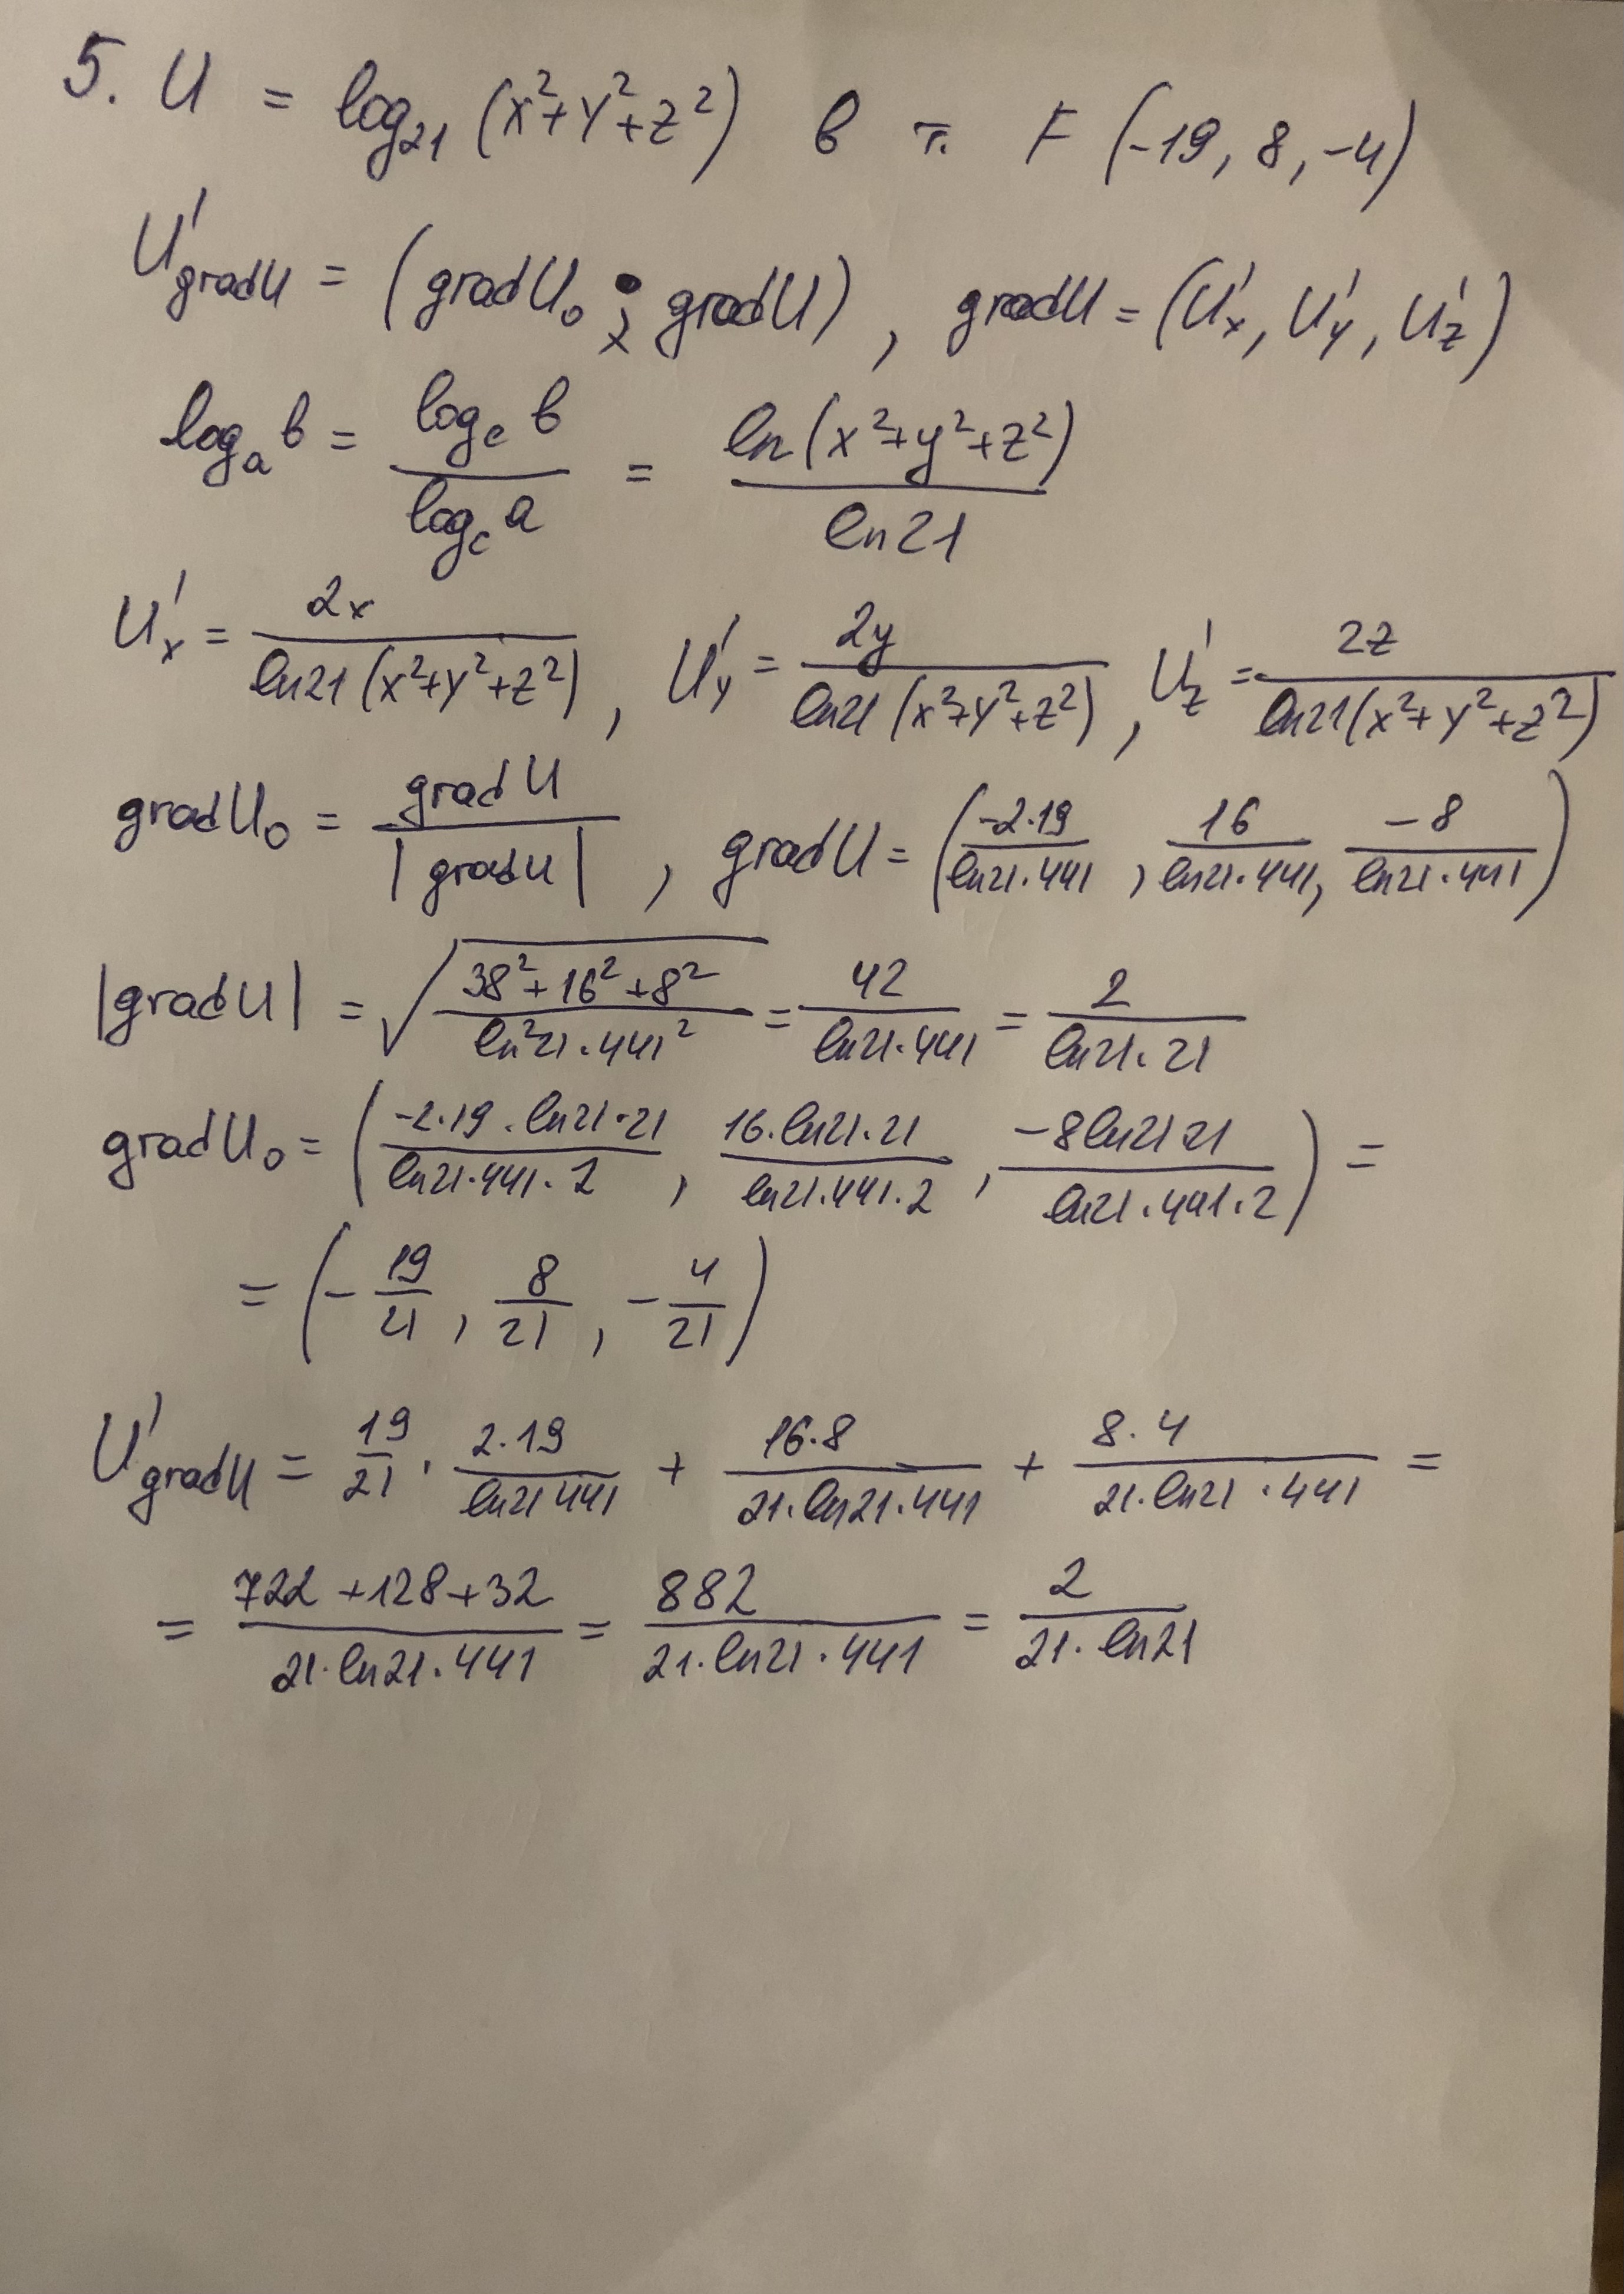 5. U = log₂₁ (x²+y²+z²) в т. F (-19, 8, -4)
U'gradU = (gradU₀ ; gradU) , gradU = (U'x, U'y, U'z)
logₐ b = log_c b / log_c a = ln(x²+y²+z²) / ln21
U'x = 2x / ln21(x²+y²+z²) , U'y = 2y / ln21(x²+y²+z²) , U'z = 2z / ln21(x²+y²+z²)
gradU₀ = gradU / |gradU| , gradU = (-2·19 / ln21·441 , 16 / ln21·441, -8 / ln21·441)
|gradU| = √(38²+16²+8² / ln²21·441²) = 42 / ln21·441 = 2 / ln21·21
gradU₀ = (-2·19·ln21·21 / ln21·441·2 , 16·ln21·21 / ln21·441·2 , -8ln21 21 / ln21·441·2) =
= (- 19/21 , 8/21 , - 4/21)
U'gradU = 19/21 · 2·19 / ln21 441 + 16·8 / 21·ln21·441 + 8·4 / 21·ln21·441 =
= 722+128+32 / 21·ln21·441 = 882 / 21·ln21·441 = 2 / 21·ln21